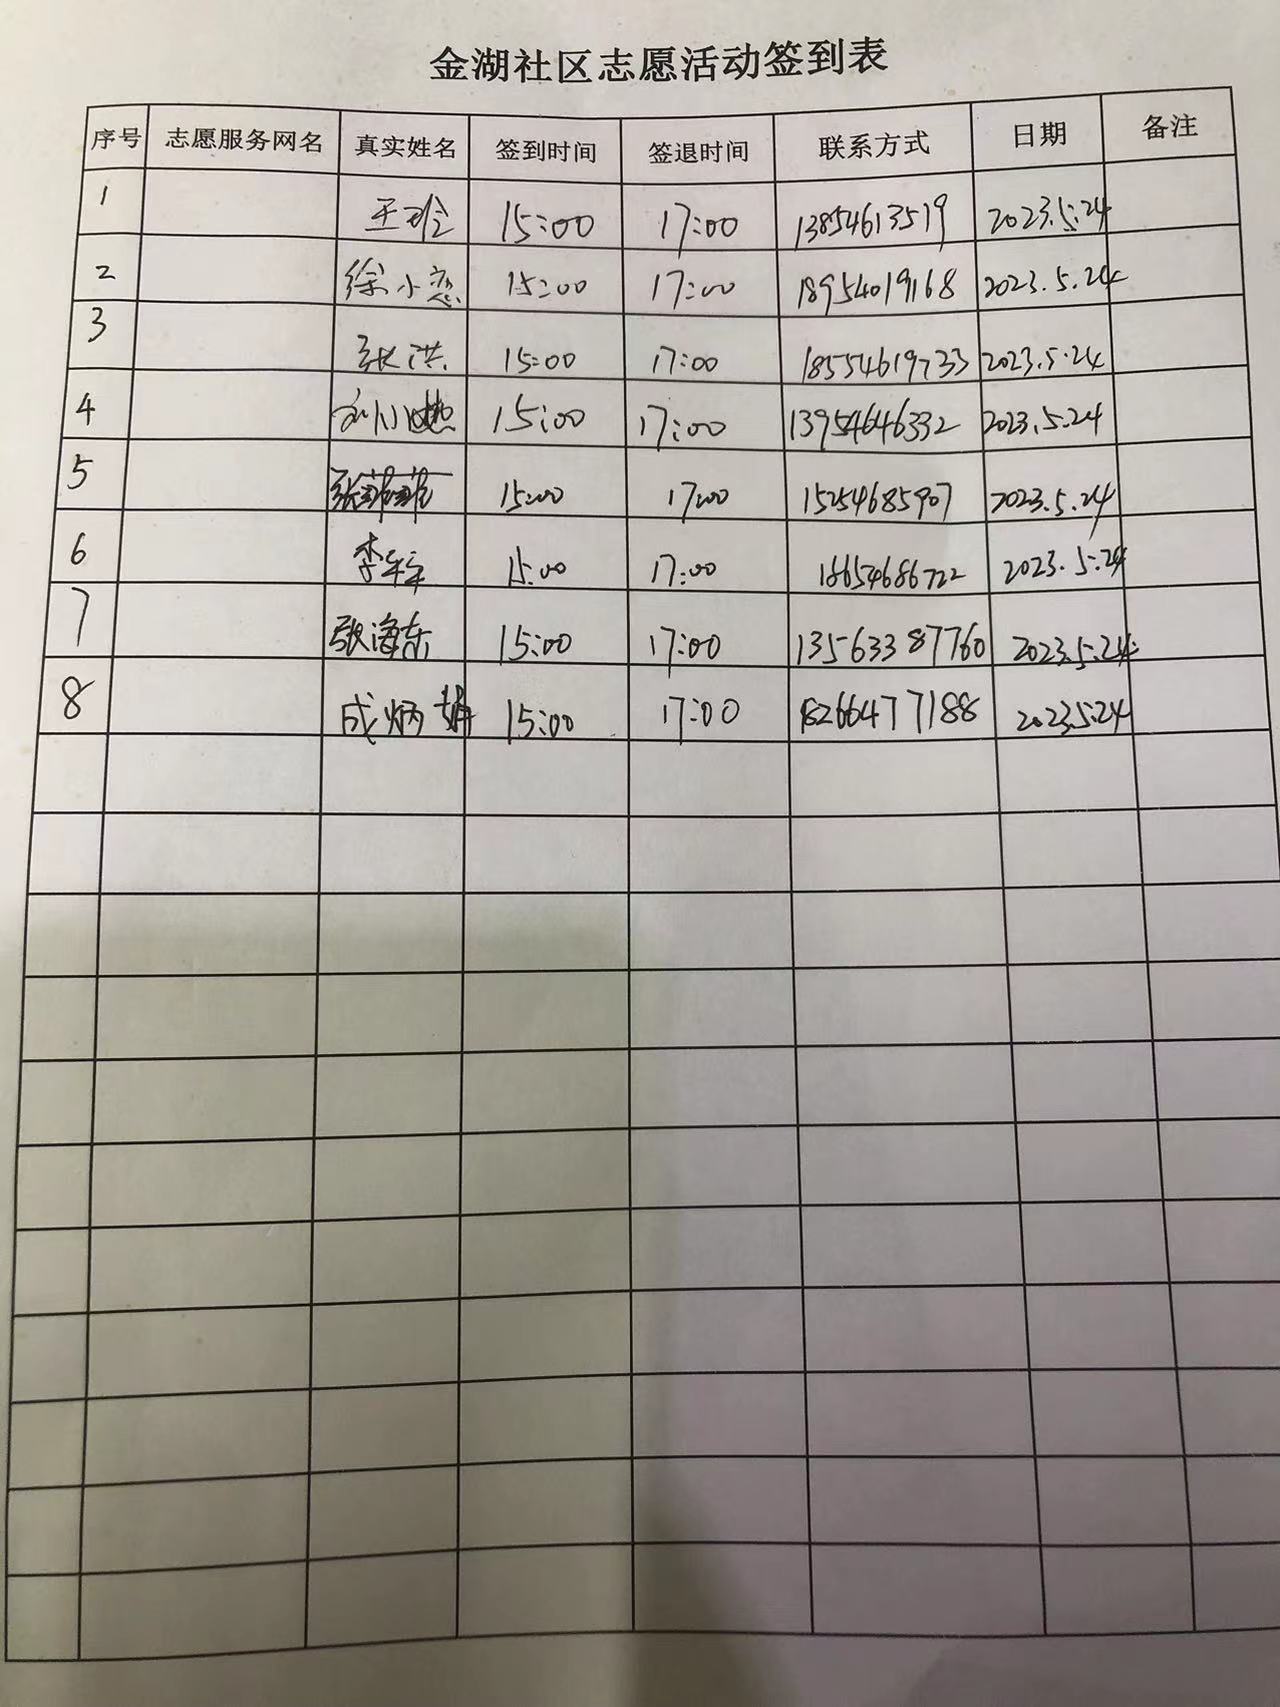 金湖社区志愿活动签到表
序号 志愿服务网名 真实姓名 签到时间 签退时间 联系方式 日期 备注
1 王玲 15:00 17:00 13854613519 2023.5.24
2 徐小恋 15:00 17:00 18954019168 2023.5.24
3 张洪 15:00 17:00 18554619733 2023.5.24
4 15:00 17:00 13954646332 2023.5.24
5 张菲菲 15:00 17:00 15254685907 2023.5.24
6 李 15:00 17:00 18654686722 2023.5.24
7 张海东 15:00 17:00 13563387760 2023.5.24
8 成炳娟 15:00 17:00 18266477188 2023.5.24